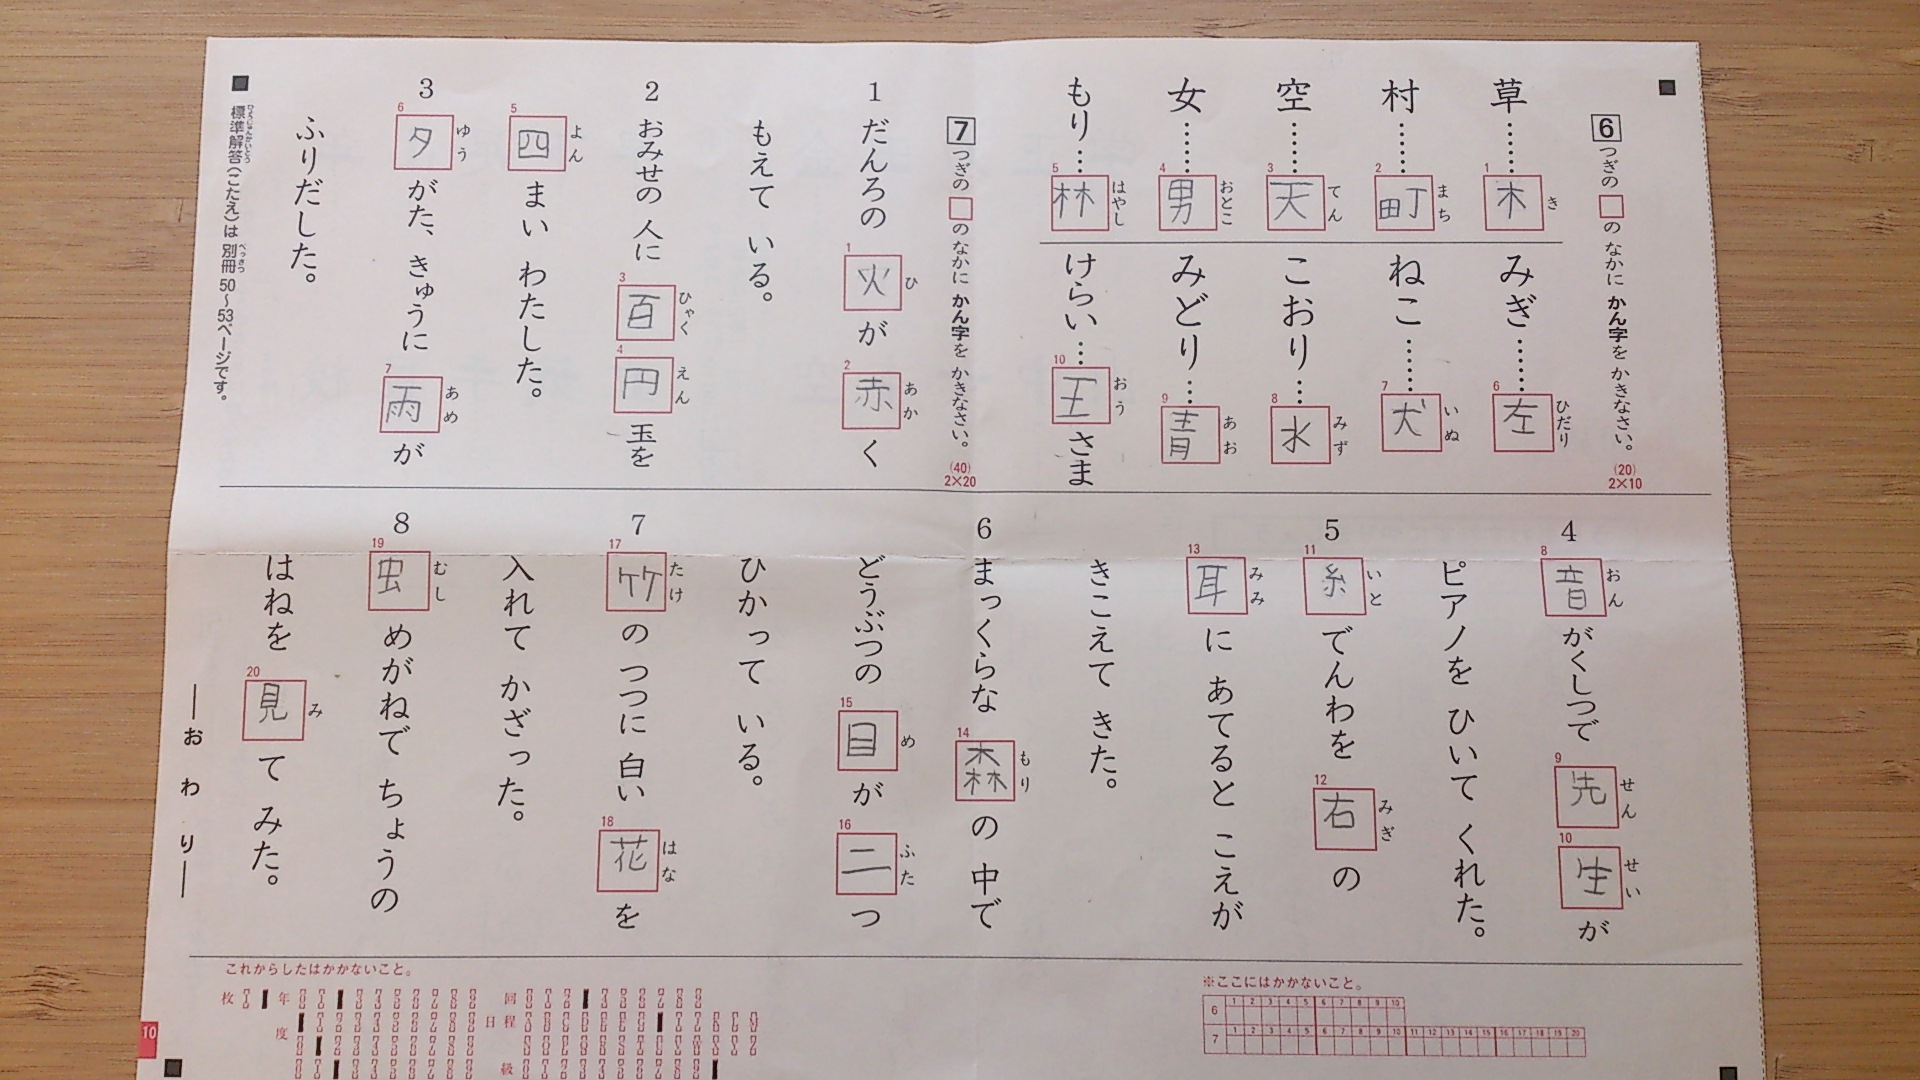 6 つぎの□の なかに かん字を かきなさい。 (20) 2×10
草……木 みぎ……左
1 き 6 ひだり
村……町 ねこ……犬
2 まち 7 いぬ
空……天 こおり…水
3 てん 8 みず
女……男 みどり…青
4 おとこ 9 あお
もり…林 けらい…王さま
5 はやし 10 おう
7 つぎの□の なかに かん字を かきなさい。 (40) 2×20
1 だんろの 火が 赤く
1 ひ 2 あか
もえて いる。
2 おみせの 人に 百円玉を
3 ひゃく 4 えん
四まい わたした。
5 よん
3 夕がた、きゅうに 雨が
6 ゆう 7 あめ
ふりだした。
標準解答(こたえ)は別冊50~53ページです。
ひょうじゅんかいとう べっさつ
4 音がくしつで 先生が
8 おん 9 せん 10 せい
ピアノを ひいて くれた。
5 糸でんわを 右の
11 いと 12 みぎ
耳に あてると こえが
13 みみ
きこえて きた。
6 まっくらな 森の 中で
14 もり
どうぶつの 目が 二つ
15 め 16 ふた
ひかって いる。
7 竹の つつに 白い 花を
17 たけ 18 はな
入れて かざった。
8 虫めがねで ちょうの
19 むし
はねを 見て みた。
20 み
―おわり―
これからしたはかかないこと。
枚 年度 回 日程 級
10
※ここにはかかないこと。
6 1 2 3 4 5 6 7 8 9 10
7 1 2 3 4 5 6 7 8 9 10 11 12 13 14 15 16 17 18 19 20